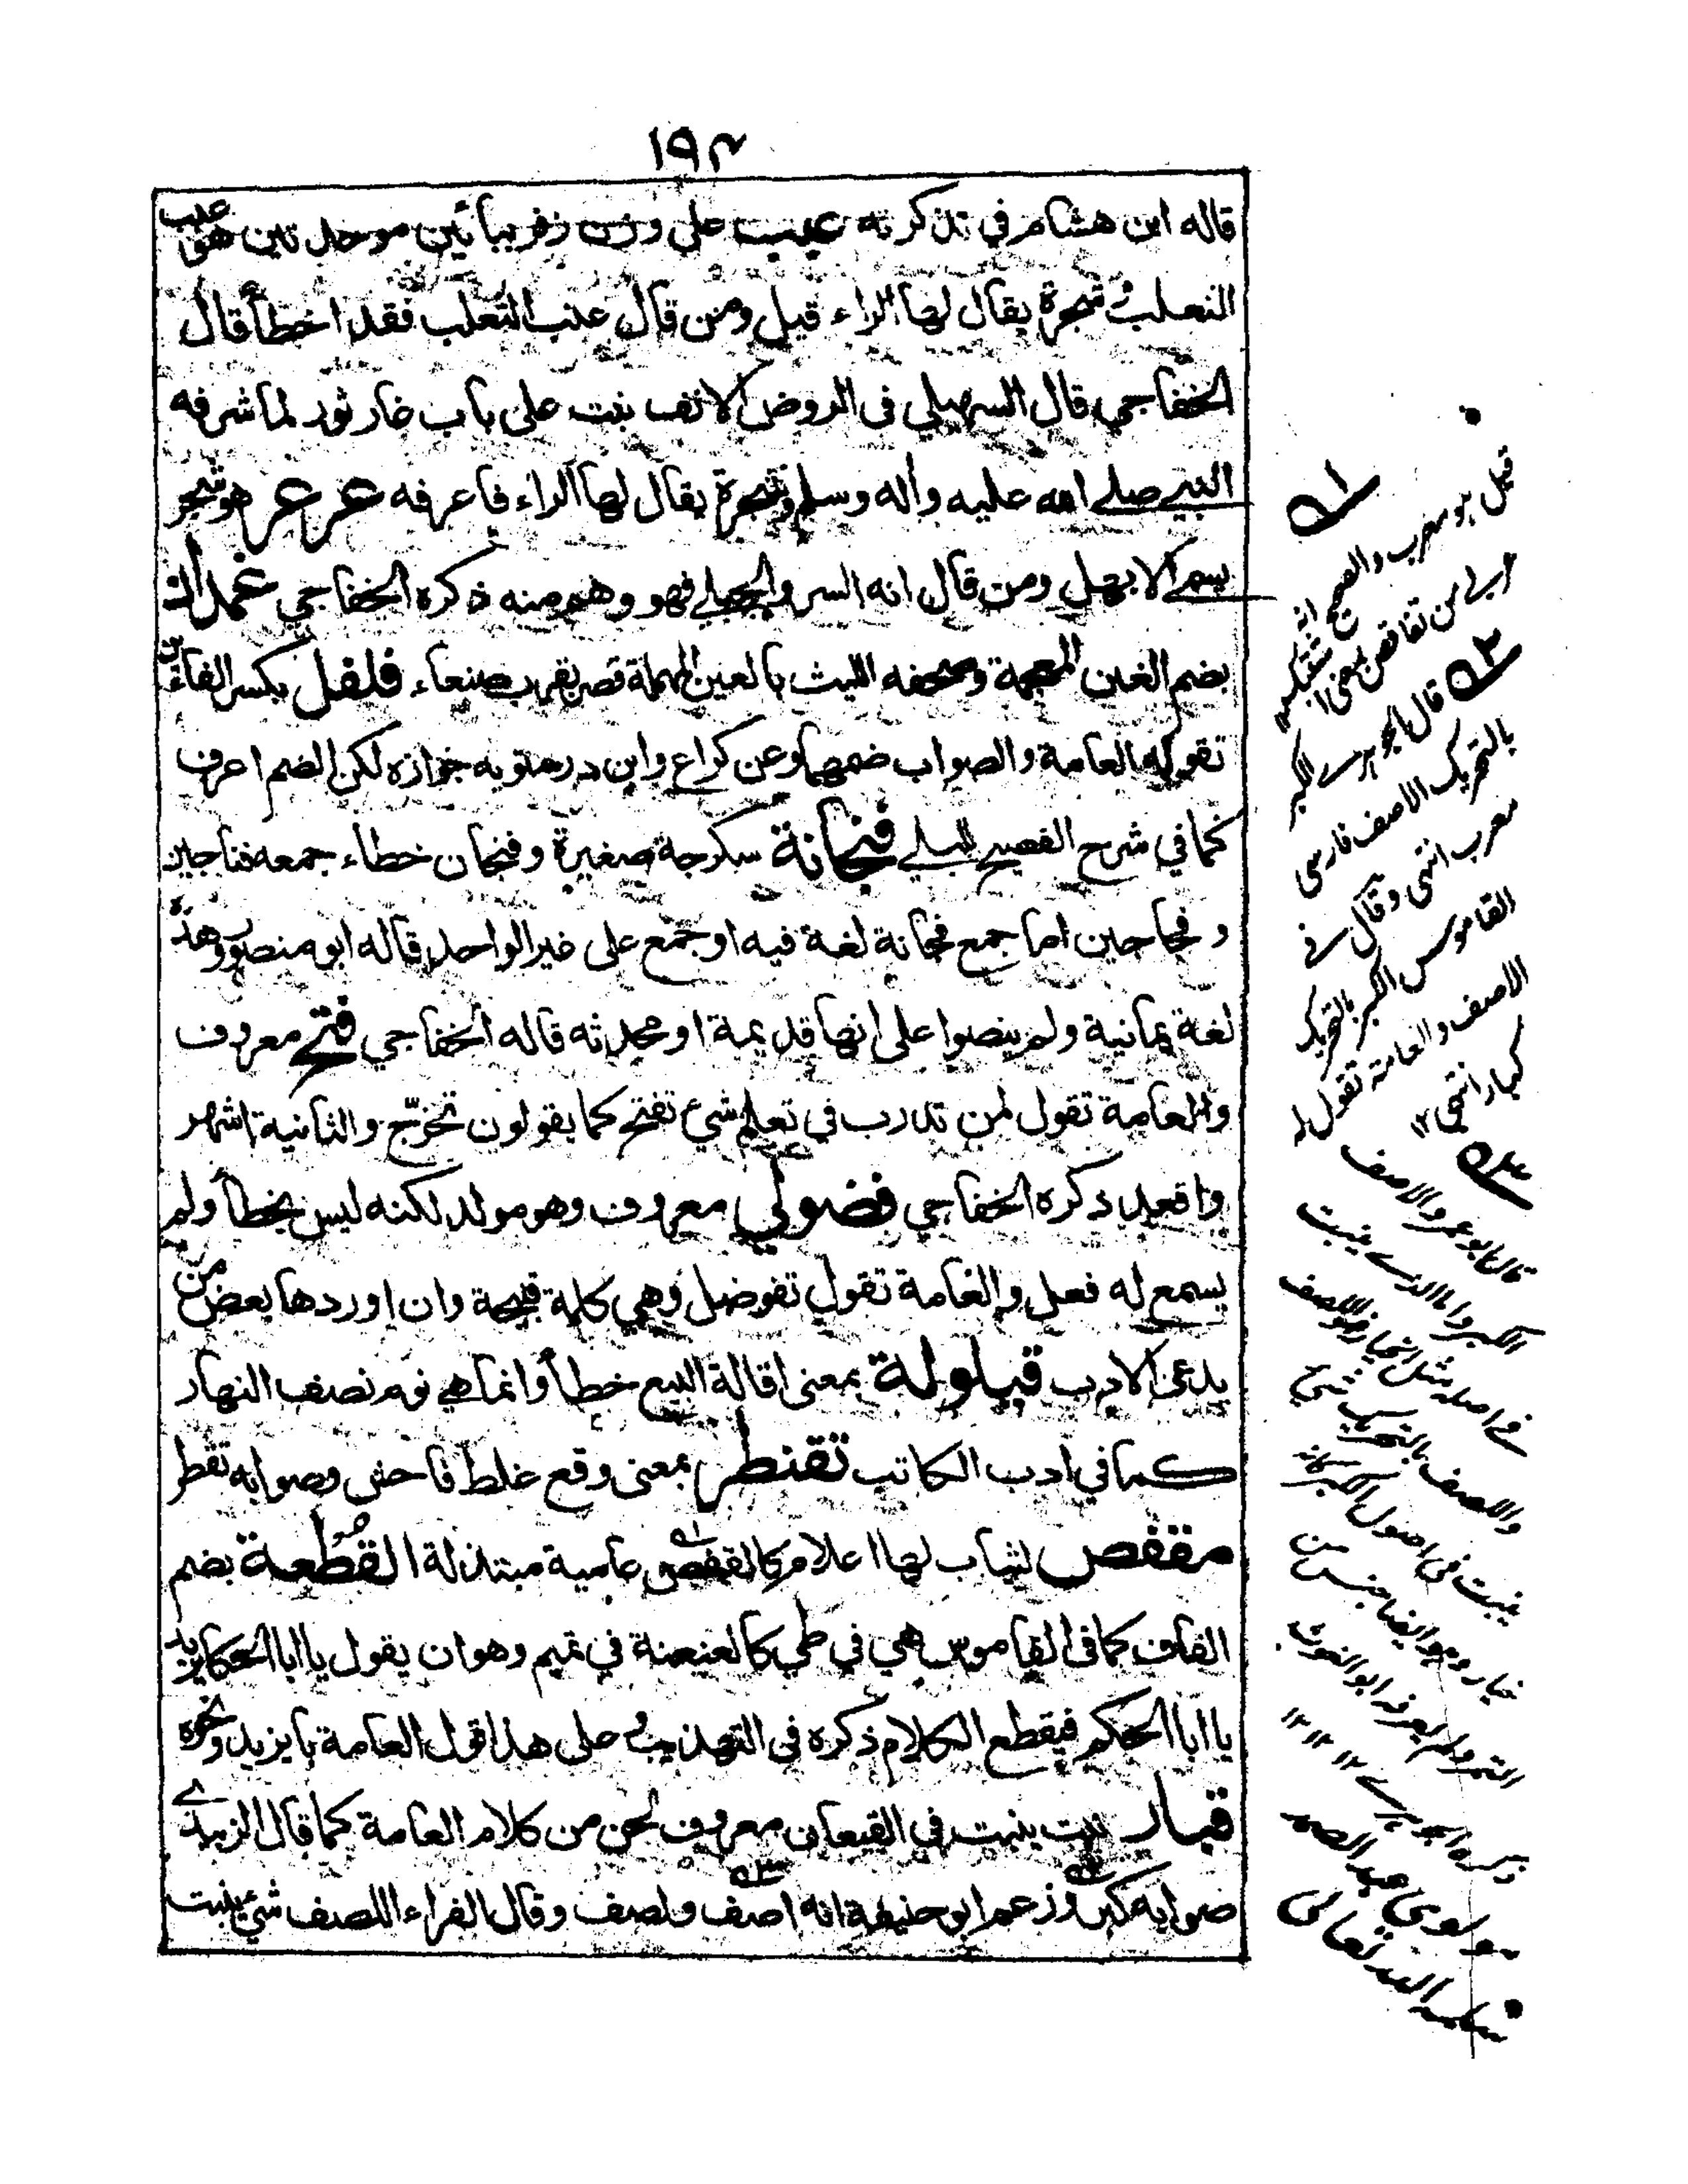 ١٩٢
قاله ابن هشام في تذكرته عبب على وزن زفر بيائين موحدتين هو عنب
الثعلب وشجرة يقال لها الراء قيل ومن قال عنب الثعلب فقد اخطأ قال
الخفاجي قال السهيلي فى الروض الانف نبت على باب غار ثور لما شرفه
النبي صلى الله عليه وأله وسلم شجرة يقال لها الراء فاعرفه عرعر هو شجر
يسمى الابهل ومن قال انه السرو الجبلي فهو وهم منه ذكره الخفاجي غمدان
بضم الغين المعجمة وصحفه الليث بالعين المهملة قصر بقرب صنعاء فلفل بكسر الفائين
تقوله العامة والصواب ضمهما وعن كراع وابن درستويه جوازه لكن الضم اعرف
كما في شرح الفصيح للبلي فنجانة سكرجة صغيرة وفنجان خطاء جمعه فناجين
و فجاجين اما جمع فجانة لغة فيه او جمع على غير الواحد قاله ابو منصور وهذه
لغة يمانية ولم ينصوا على انها قديمة او محدثه قاله الخفاجي فتح معروف
والعامة تقول لمن تدرب في تعلم شئ تفتح كما يقولون تخرّج والثانية اشهر
واقعد ذكره الخفاجي فضولي معروف وهو مولد لكنه ليس بخطأ ولم
يسمع له فعل والعامة تقول تفوضل وهي كلمة قبيحة وان اوردها بعض من
يدعى الادب قيلولة بمعنى اقالة البيع خطأ وانما هي نوم نصف النهار
كما في ادب الكاتب تقنطر بمعنى وقع غلط فاحش وصوابه تقطر
مقفص لثياب لها اعلام كالقفص عامية مبتذلة القُطْعة بضم
القاف كما فى القاموس هي في طي كالعنعنة في تميم وهو ان يقول يا ابا الحكا يريد
يا ابا الحكم فيقطع الكلام ذكره فى التهذيب و على هذا قول العامة با يزيد ونحوه
قبار نبت ينبت في القيعان معروف لحن من كلام العامة كما قال الزبيدي
صوابه كبر وزعم ابو حنيفة انه اصف ولصف وقال الفراء اللصف شئ ينبت
قيل هو معرب والصحيح انه
عربى من تقافص بمعنى اشتبك
قال الجوهرى الكبر
بالتحريك الاصف فارسى
معرب انتهى وقال فى
القاموس الكبر بالتحريك
الاصف والعامة تقول
كبار انتهى ١٢
قال ابو عمرو الاصف
الكبر واما الذى ينبت
فى اصله مثل الخيار فهو اللصف
واللصف بالتحريك شئ
ينبت فى اصول الكبر كانه
خيار وهو ايضا جنس من
التمر ولم يعرفه ابو الغوث
ذكره الجوهرى ١٢ ١٢ ١٢